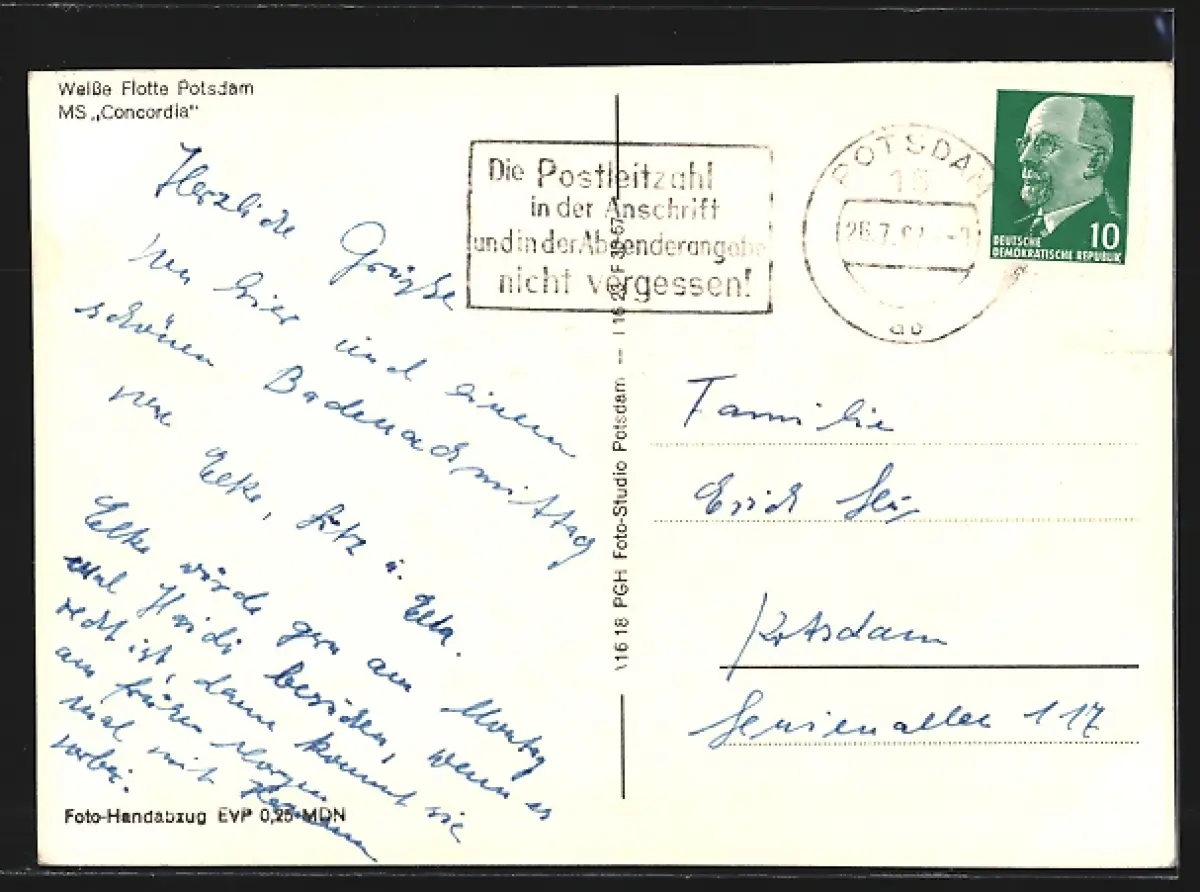 Weiße Flotte Potsdam
MS „Concordia"
Herzliche Grüße
von hier und einem
schönen Badenachmittag
von
Elke, Fritz u. Ella.
Elke würde gern am Montag
mal Heidi besuchen, wenn es
recht ist, dann kommt sie
am frühen Morgen
mal mit
vorbei.
Foto-Handabzug EVP 0,25 MDN
Die Postleitzahl
in der Anschrift
und in der Absenderangabe
nicht vergessen!
POTSDAM
DEUTSCHE
DEMOKRATISCHE REPUBLIK
10
PGH Foto-Studio Potsdam
Familie
Erich
Potsdam
117